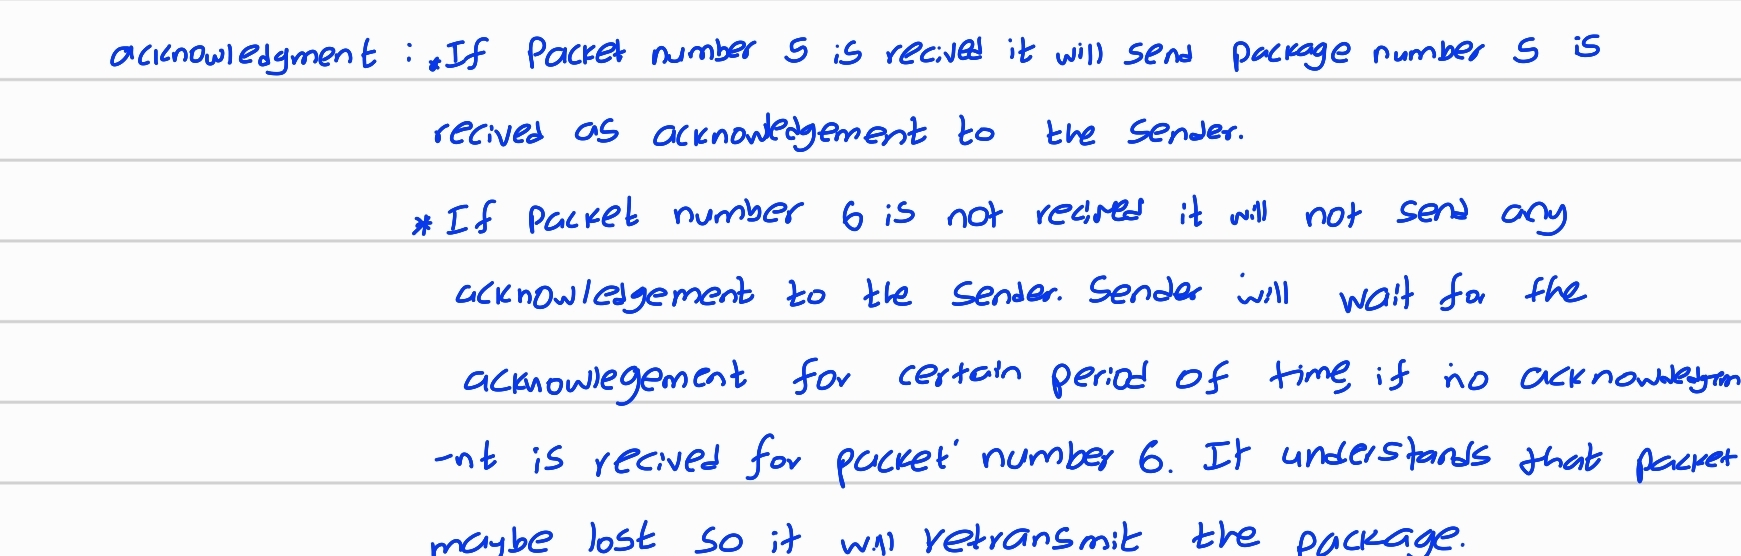 acknowledgment : *If Packet number 5 is recived it will send package number 5 is
recived as acknowledgement to the sender.
* If packet number 6 is not recived it will not send any
acknowledgement to the sender. Sender will wait for the
acknowlegement for certain period of time, if no acknowledgm
-nt is recived for packet number 6. It understands that packet
maybe lost so it will retransmit the package.